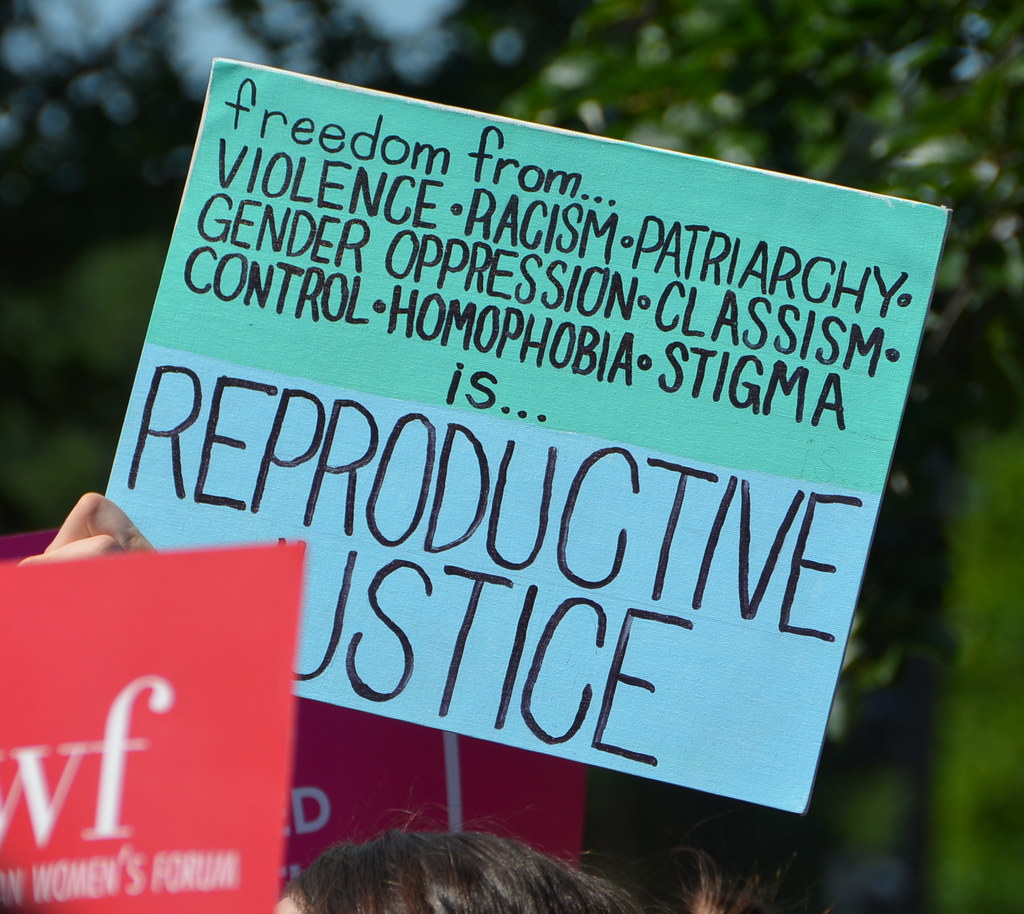 freedom from...
VIOLENCE • RACISM • PATRIARCHY •
GENDER OPPRESSION • CLASSISM •
CONTROL • HOMOPHOBIA • STIGMA
is...
REPRODUCTIVE
JUSTICE
wf
WOMEN'S FORUM